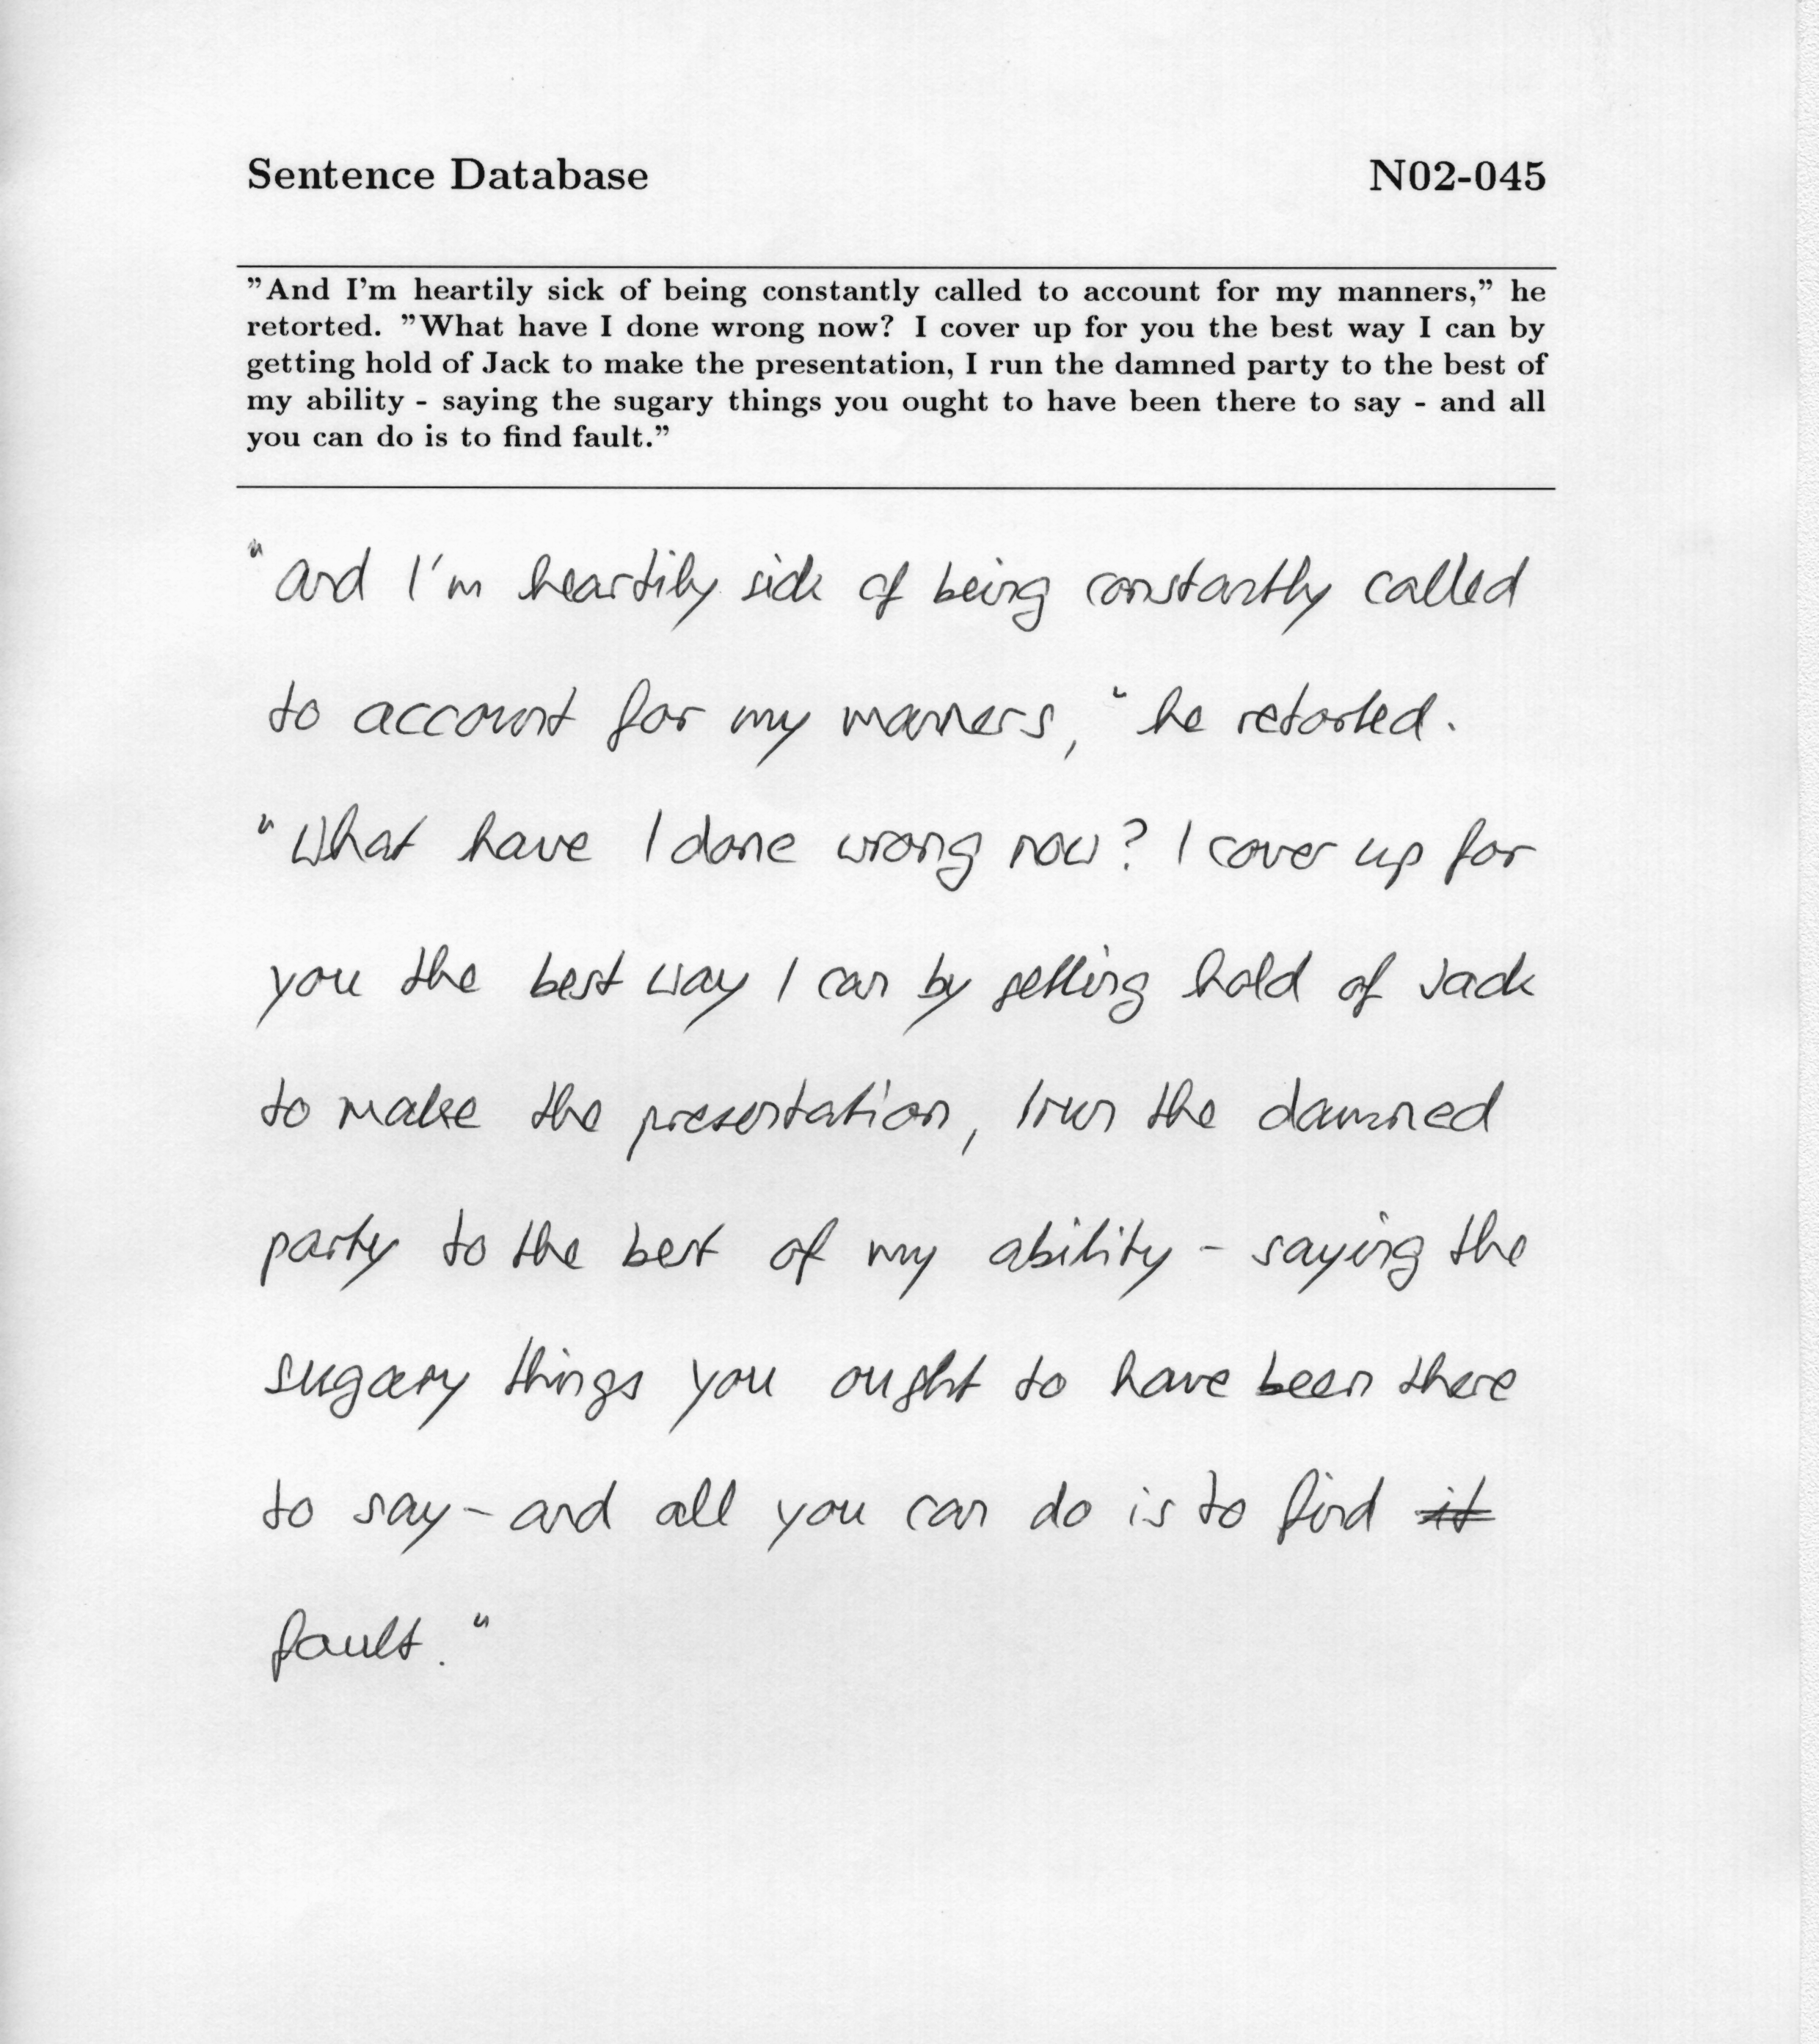 Sentence Database N02-045
"And I'm heartily sick of being constantly called to account for my manners," he
retorted. "What have I done wrong now? I cover up for you the best way I can by
getting hold of Jack to make the presentation, I run the damned party to the best of
my ability - saying the sugary things you ought to have been there to say - and all
you can do is to find fault."
"And I'm heartily sick of being constantly called
to account for my manners," he retorted.
"What have I done wrong now? I cover up for
you the best way I can by getting hold of Jack
to make the presentation, I run the damned
party to the best of my ability - saying the
sugary things you ought to have been there
to say - and all you can do is to find it
fault."